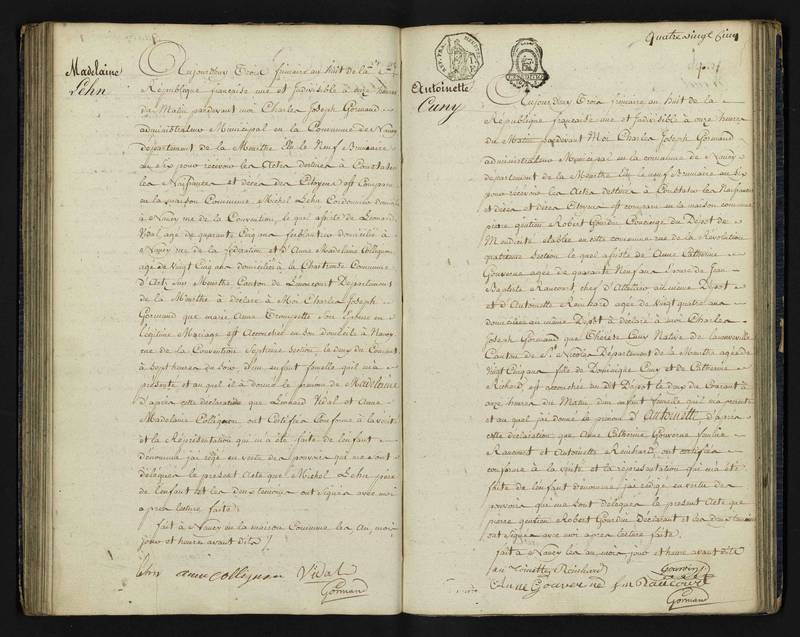 Madelaine
Lehn
Aujourdhuy Trois frimaire an huit de la
République française une et Indivisible à onze heures
du Matin pardevant moi Charles Joseph Gormand
administrateur Municipal en la Commune de Nancy
département de la Meurthe Elu le Neuf Brumaire
an Six pour recevoir les Actes destinés à Constater
les Naissances et décès des Citoyens est Comparu
en la maison Commune Michel Lehn Cordonnier domicilié
à Nancy rue de la Convention, le quel assisté de Léonard
Vidal agé de quarante Cinq ans domicilié à
Nancy rue de la fédération et d'Anne Madelaine Collignon
agée de vingt Cinq ans domiciliée à la Chartreuse Commune
d'Art sur Meurthe, Canton de Département
de la Meurthe à déclaré à Moi Charles Joseph
Gormand que marie Anne Trompette son Epouse en
légitime Mariage est Accouchée en son domicile à Nancy
rue de la Convention Septième Section, le deux du Courant
à Sept heures du Soir d'un enfant femelle qu'il m'a
présenté et au quel il à donné le prenom de Madelaine
d'après cette déclaration que Léonard Vidal et Anne
Madelaine Collignon ont Certifiée Conforme à la vérité
et la Représentation qui m'a été faite de l'enfant
dénommé j'ai rédigé en vertu des pouvoirs qui me sont
délégués le présent Acte que Michel Lehn pere
de l'enfant et les deux témoins ont signés avec moi
après lecture faite.
fait à Nancy en la maison Commune les An, mois
jour et heure avant dits /.
Lehn anne Collignon Vidal
Gormand
quatre vingt Cinq
Antoinette
Cuny
Aujourdhuy Trois frimaire an huit de la
République française une et Indivisible à onze heures
du Matin pardevant Moi Charles Joseph Gormand
administrateur Municipal en la commune de Nancy
département de la Meurthe Elu le neuf Brumaire an Six
pour recevoir les Actes destinés à Constater les Naissances
et décès des Citoyens est comparu en la maison commune
pierre gentien Robert Gourdin Concierge du Dépot de
Mendicité établie en cette commune rue de la Révolution
quatrieme Section le quel assisté de Anne Catherine
Gouverne agée de quarante Neuf ans Epouse de Jean
Baptiste Raucourt, chef d'Attellier au même Dépot
et d'Antoinette Reinhard agée de Vingt quatre ans
domiciliées au même Dépot à déclaré à moi Charles
Joseph Gormand que Thérèse Cuny Native de
Canton de St Nicolas Département de la Meurthe agée de
vingt Cinq ans fille de Dominique Cuny et de Catherine
Richard est accouchée au dit Dépot le deux du Courant à
onze heures du Matin d'un enfant femelle qu'il m'a présenté
et au quel j'ai donné le prénom d'Antoinette, d'après
cette déclaration que Anne Catherine Gouverne femme
Raucourt et Antoinette Reinhard ont certifiée
conforme à la vérité et la représentation qui m'a été
faite de l'enfant dénommé j'ai rédigé en vertu des
pouvoirs qui me sont délégués le présent Acte que
pierre gentien Robert Gourdin Déclarant et les deux témoins
ont signés avec moi après lecture faite.
fait à Nancy les an mois jour et heure avant dits
antoinette Reinhard Gourdin
Anne Gouverne fme Raucourt
Gormand